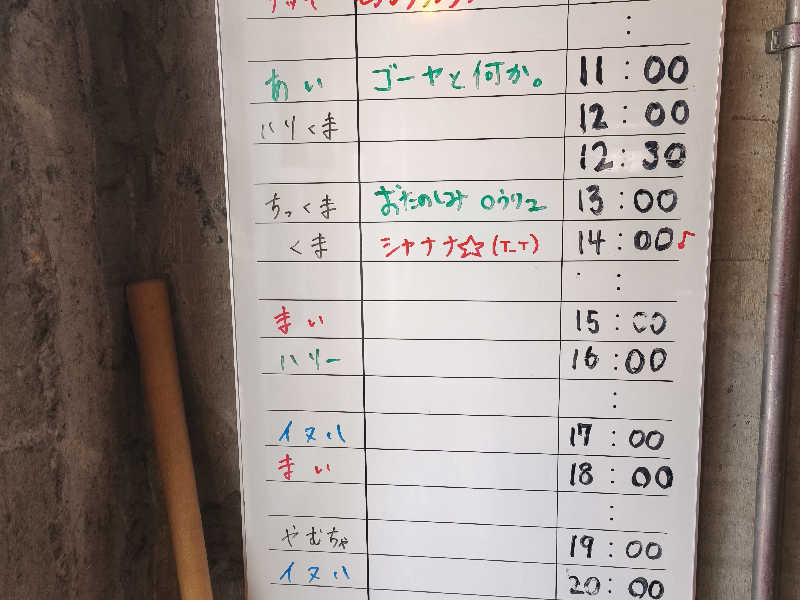 :
あい ゴーヤと何か。 11:00
ハリくま 12:00
12:30
ちっくま おたのしみ ロウリュ 13:00
くま シャナナ☆(T_T) 14:00♪
:
まい 15:00
ハリー 16:00
:
イヌい 17:00
まい 18:00
:
やむちゃ 19:00
イヌハ 20:00